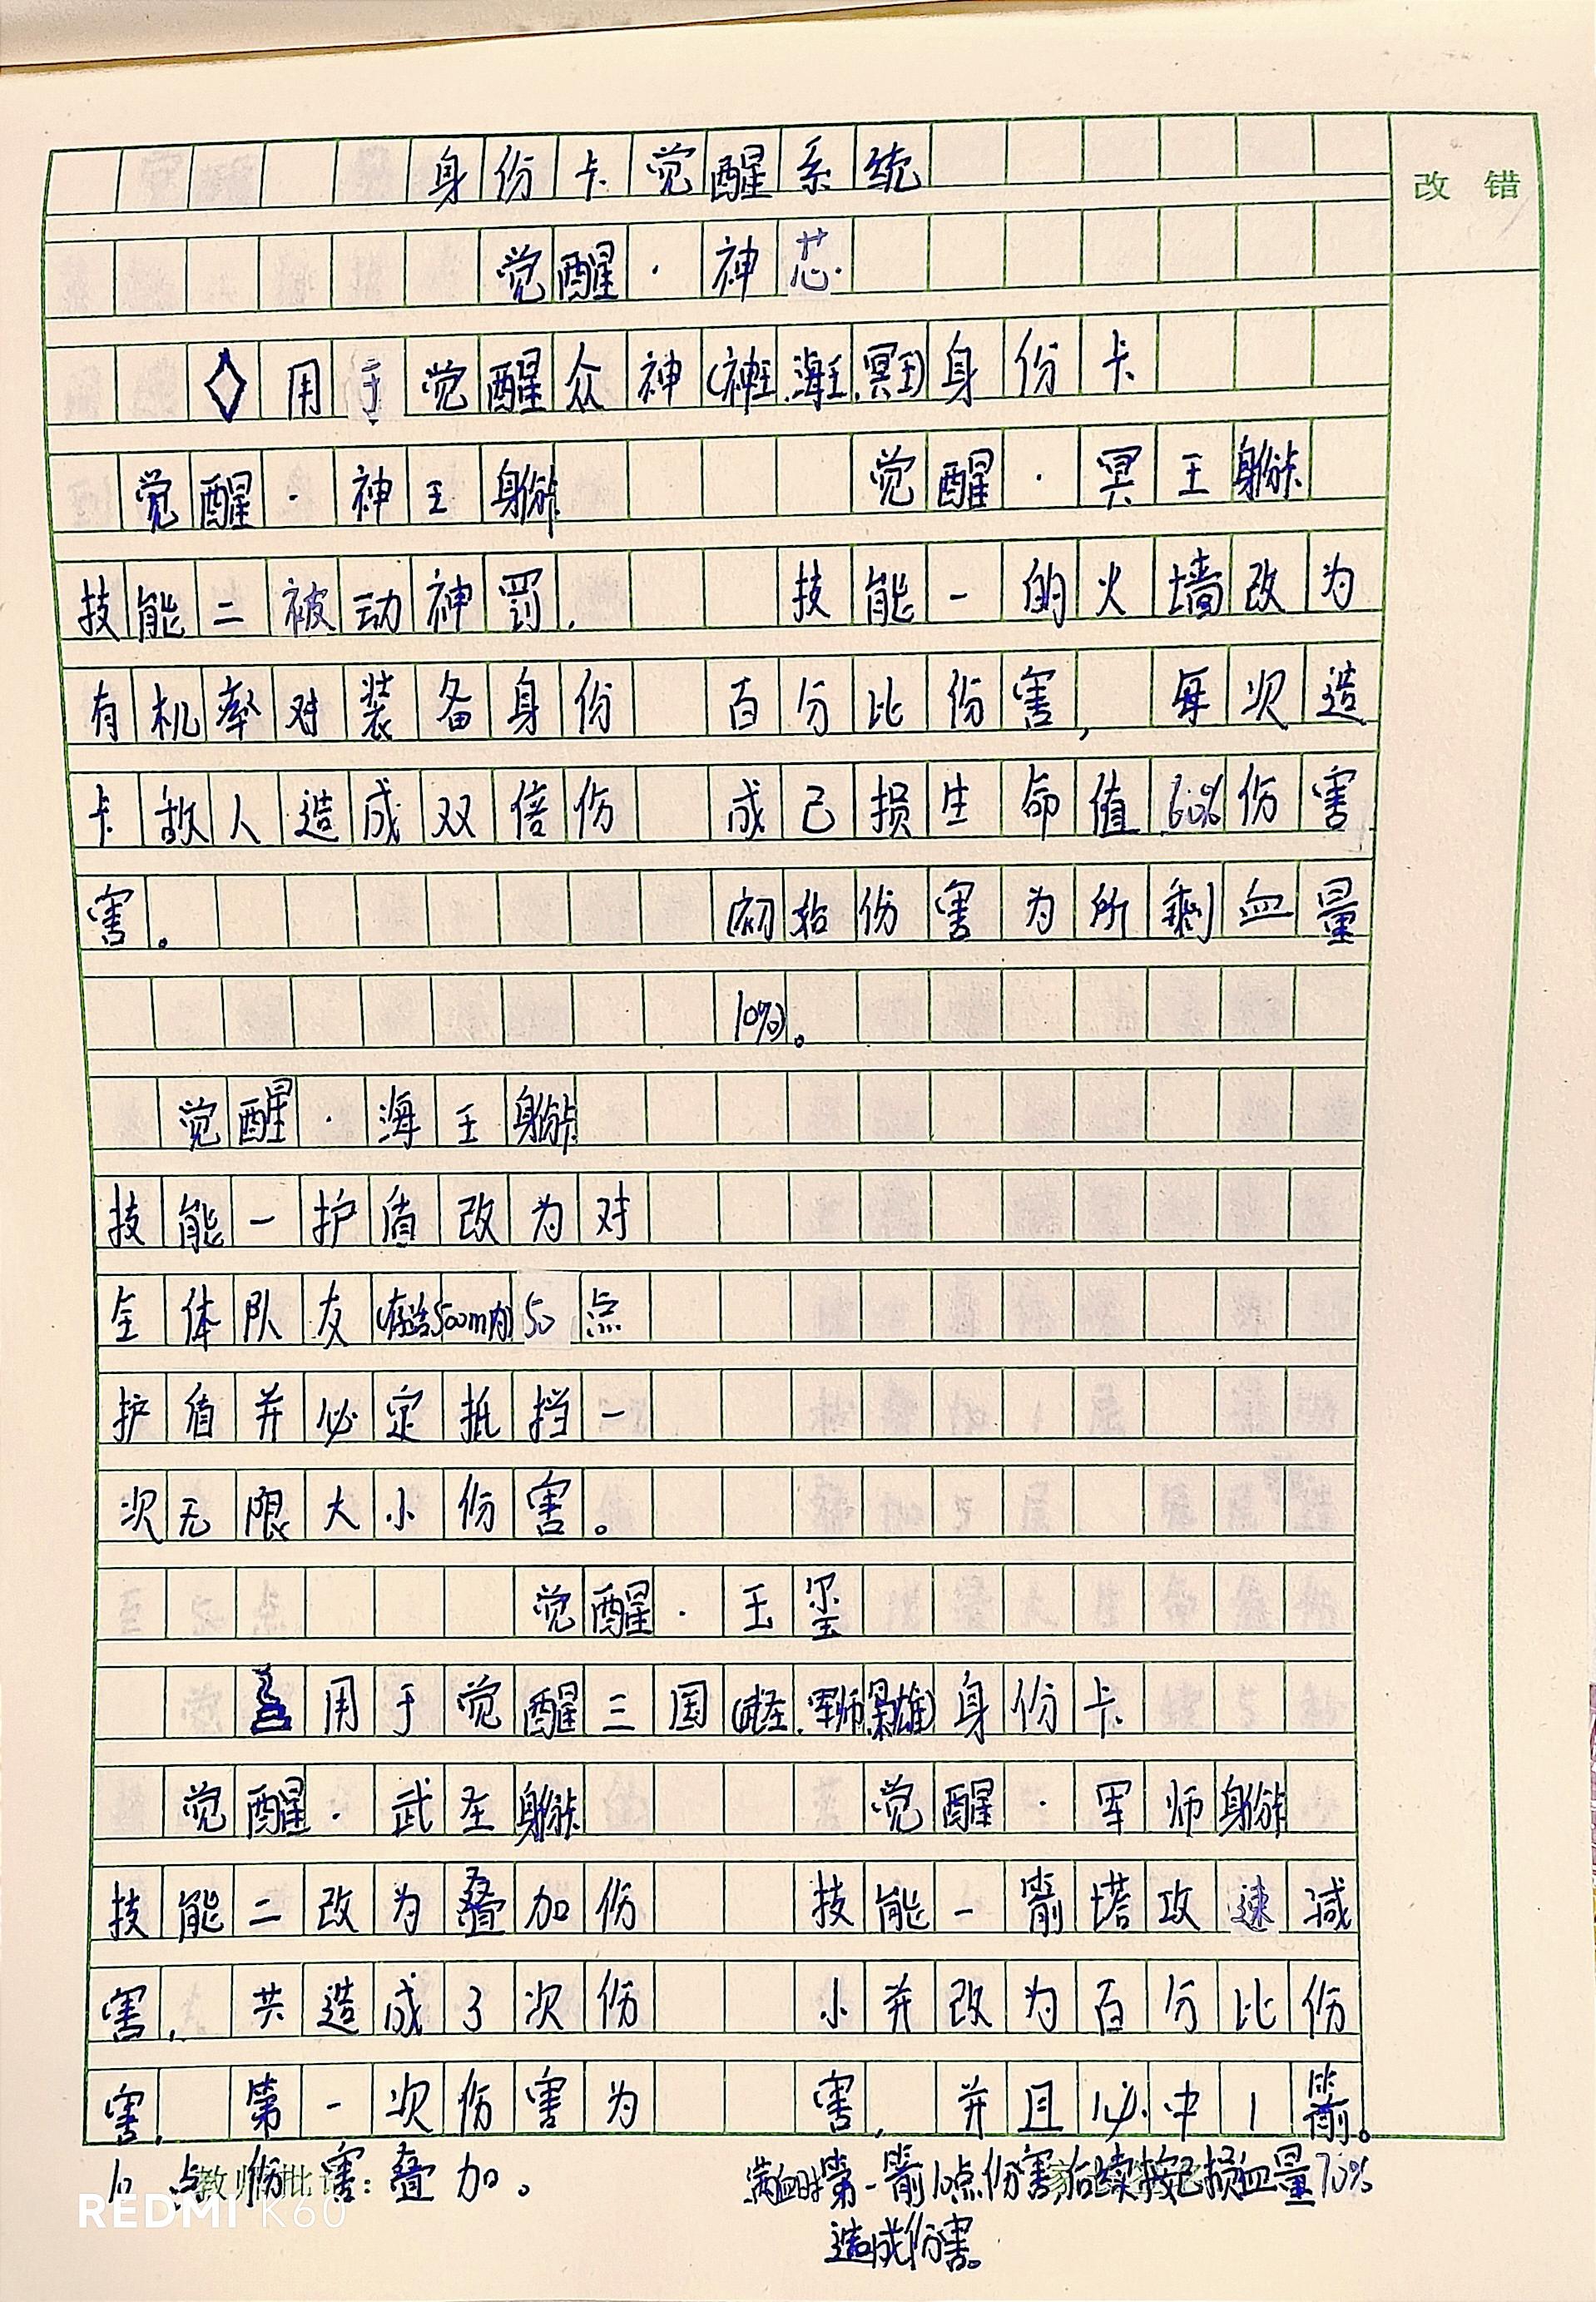 身份卡觉醒系统
改 错
觉醒·神芯·
用于觉醒众神(神王.海王.冥王)身份卡
觉醒·神王身份卡
技能二被动神罚,
有机率对装备身份
卡敌人造成双倍伤
害。
觉醒·冥王身份卡
技能一的火墙改为
百分比伤害, 每次造
成已损生命值60%伤害
(初始伤害为所剩血量
10%)。
觉醒·海王身份卡
技能一护盾改为对
全体队友(存活500m内)50点
护盾并必定抵挡一
次无限大小伤害。
觉醒·玉玺
用于觉醒三国(武圣.军师.枭雄)身份卡
觉醒·武圣身份卡
技能二改为叠加伤
害, 共造成3次伤
害, 第一次伤害为
10点伤害叠加。
觉醒·军师身份卡
技能一箭塔攻速减
小并改为百分比伤
害, 并且必中1箭。
满血时第一箭10点伤害,后续按已损血量70%
造成伤害。
教师批语:
REDMI K60